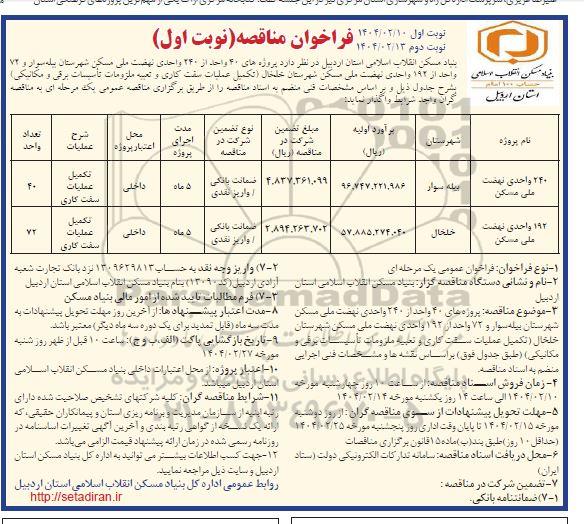 فراخوان مناقصه(نوبت اول)
نوبت اول ۱۴۰۴/۰۲/۱۰
نوبت دوم ۱۴۰۴/۰۲/۱۳
بنیاد مسکن انقلاب اسلامی
حساب ۱۰۰ امام
استان اردبیل
بنیاد مسکن انقلاب اسلامی استان اردبیل در نظر دارد پروژه های ۴۰ واحد از ۲۴۰ واحدی نهضت ملی مسکن شهرستان بیله‌سوار و ۷۲
واحد از ۱۹۲ واحدی نهضت ملی مسکن شهرستان خلخال (تکمیل عملیات سفت کاری و تعبیه ملزومات تأسیسات برقی و مکانیکی)
بشرح جدول ذیل و بر اساس مشخصات فنی منضم به اسناد مناقصه را از طریق برگزاری مناقصه عمومی یک مرحله ای به مناقصه
گران واجد شرایط واگذار نماید:
نام پروژه	شهرستان	برآورد اولیه (ریال)	مبلغ تضمین شرکت در مناقصه (ریال)	نوع تضمین شرکت در مناقصه	مدت اجرای پروژه	محل اعتبارپروژه	شرح عملیات	تعداد واحد
۲۴۰ واحدی نهضت ملی مسکن	بیله سوار	۹۶،۷۴۷،۲۲۱،۹۸۶	۴،۸۳۷،۳۶۱،۰۹۹	ضمانت بانکی / واریز نقدی	۵ ماه	داخلی	تکمیل عملیات سفت کاری	۴۰
۱۹۲ واحدی نهضت ملی مسکن	خلخال	۵۷،۸۸۵،۲۷۴،۰۴۰	۲،۸۹۴،۲۶۳،۷۰۲	ضمانت بانکی / واریز نقدی	۵ ماه	داخلی	تکمیل عملیات سفت کاری	۷۲
۱-نوع فراخوان: فراخوان عمومی یک مرحله ای
۲-نام و نشانی دستگاه مناقصه گزار: بنیاد مسکن انقلاب اسلامی استان
اردبیل
۳-موضوع مناقصه: پروژه‌های ۴۰ واحد از ۲۴۰ واحدی نهضت ملی مسکن
شهرستان بیله‌سوار و ۷۲ واحد از ۱۹۲ واحدی نهضت ملی مسکن شهرستان
خلخال (تکمیل عملیات سفت کاری و تعبیه ملزومات تأسیسات برقی و
مکانیکی) (طبق جدول فوق) براساس نقشه ها و مشخصات فنی اجرایی
منضم به اسناد مناقصه.
۴- زمان فروش اسناد مناقصه: از ساعت ۱۰ روز چهارشنبه مورخه
۱۴۰۴/۰۲/۱۰ الی ساعت ۱۴ روز یکشنبه مورخه ۱۴۰۴/۰۲/۱۴
۵-مهلت تحویل پیشنهادات از سوی مناقصه گران : از روز دوشنبه
مورخه ۱۴۰۴/۰۲/۱۵ تا پایان وقت اداری روز پنجشنبه مورخه ۱۴۰۴/۰۲/۲۵
(حداقل ۱۰ روز)طبق بند(ب)ماده۱۵قانون برگزاری مناقصات
۶-محل دریافت اسناد مناقصه: سامانه تدارکات الکترونیکی دولت (ستاد
ایران)
۷-تضمین شرکت در مناقصه :
۷-۱) ضمانتنامه بانکی.
۷-۲) واریز وجه نقد به حساب۱۳۰۹۶۲۹۸۱۳ نزد بانک تجارت شعبه
آزادی اردبیل(کد۱۳۰۹۰) بنام بنیاد مسکن انقلاب اسلامی استان اردبیل
۷-۳) فرم مطالبات تایید شده از امور مالی بنیاد مسکن
۸-مدت اعتبار پیشنهاد ها: از آخرین روز مهلت تحویل پیشنهادات به
مدت سه ماه (قابل تمدید برای یک دوره سه ماه دیگر) معتبر باشد.
۹-تاریخ بازگشایی پاکت (الف، ب و ج): ساعت ۱۰ قبل از ظهر روز شنبه
مورخه ۱۴۰۴/۰۲/۲۷
۱۰-اعتبار پروژه: از محل اعتبارات داخلی بنیاد مسکن انقلاب اسلامی
استان اردبیل میباشد.
۱۱-شرایط مناقصه گران: کلیه شرکتهای تشخیص صلاحیت شده دارای
رتبه ابنیه از سازمان مدیریت و برنامه ریزی استان و پیمانکاران حقیقی، که
ارائه یک نسخه از گواهی رتبه بندی و آخرین آگهی تغییرات اساسنامه در
روزنامه رسمی شده در زمان ارائه پیشنهاد قیمت الزامی می‌باشد.
۱۲-جهت کسب اطلاعات بیشتر می توانید به اداره کل بنیاد مسکن استان
اردبیل و سایت ذیل مراجعه نمایید.
روابط عمومی اداره کل بنیاد مسکن انقلاب اسلامی استان اردبیل
http://setadiran.ir